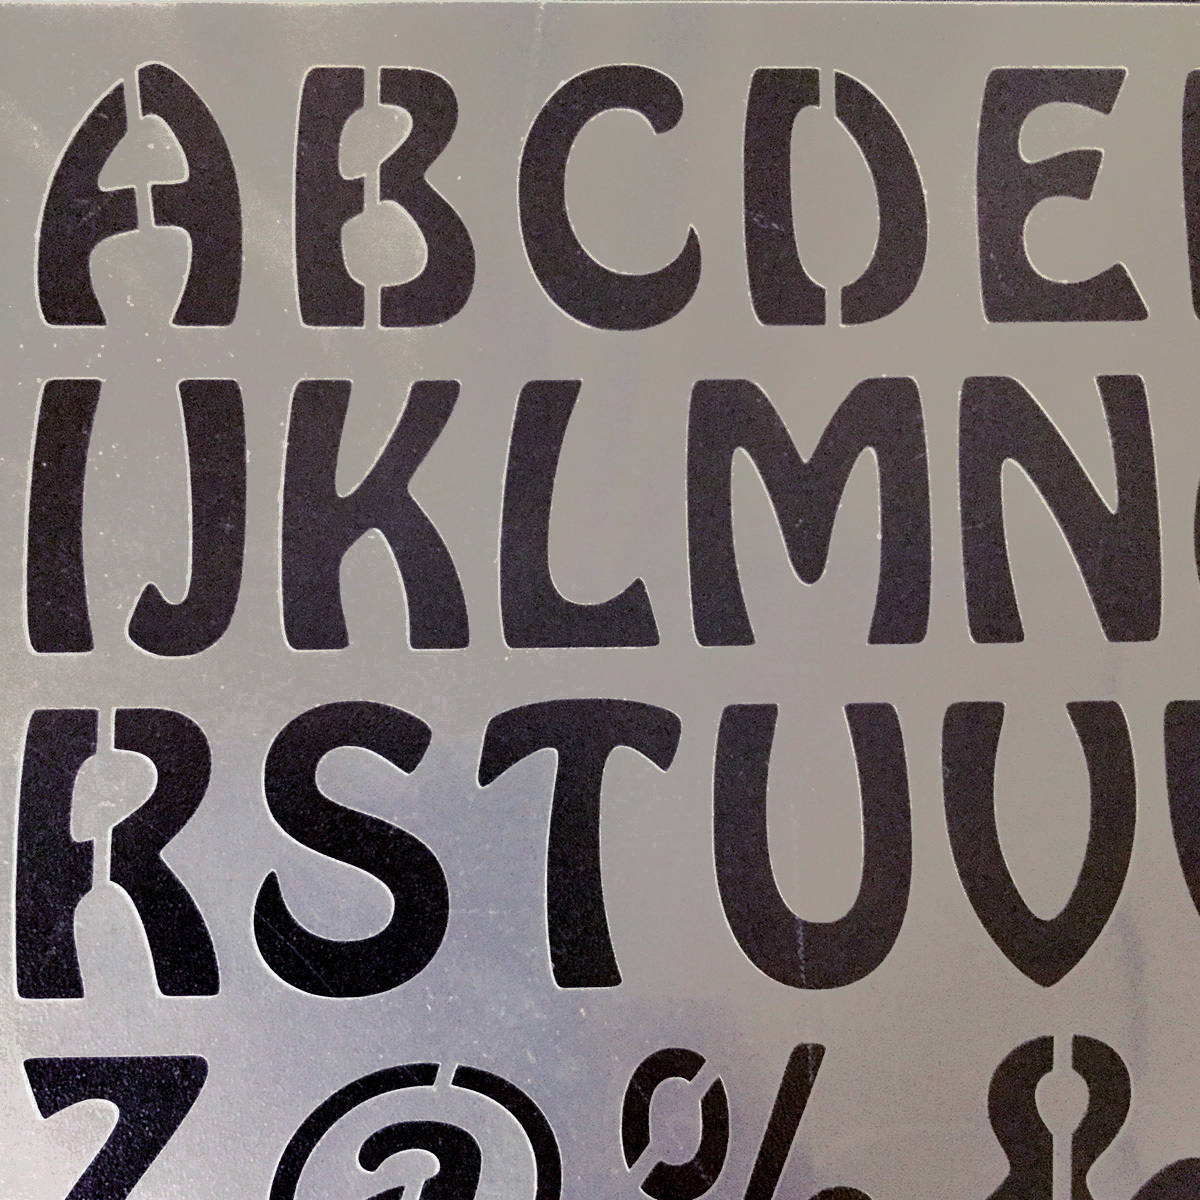 ABCDE
IJKLMN
RSTUV
Z@%&